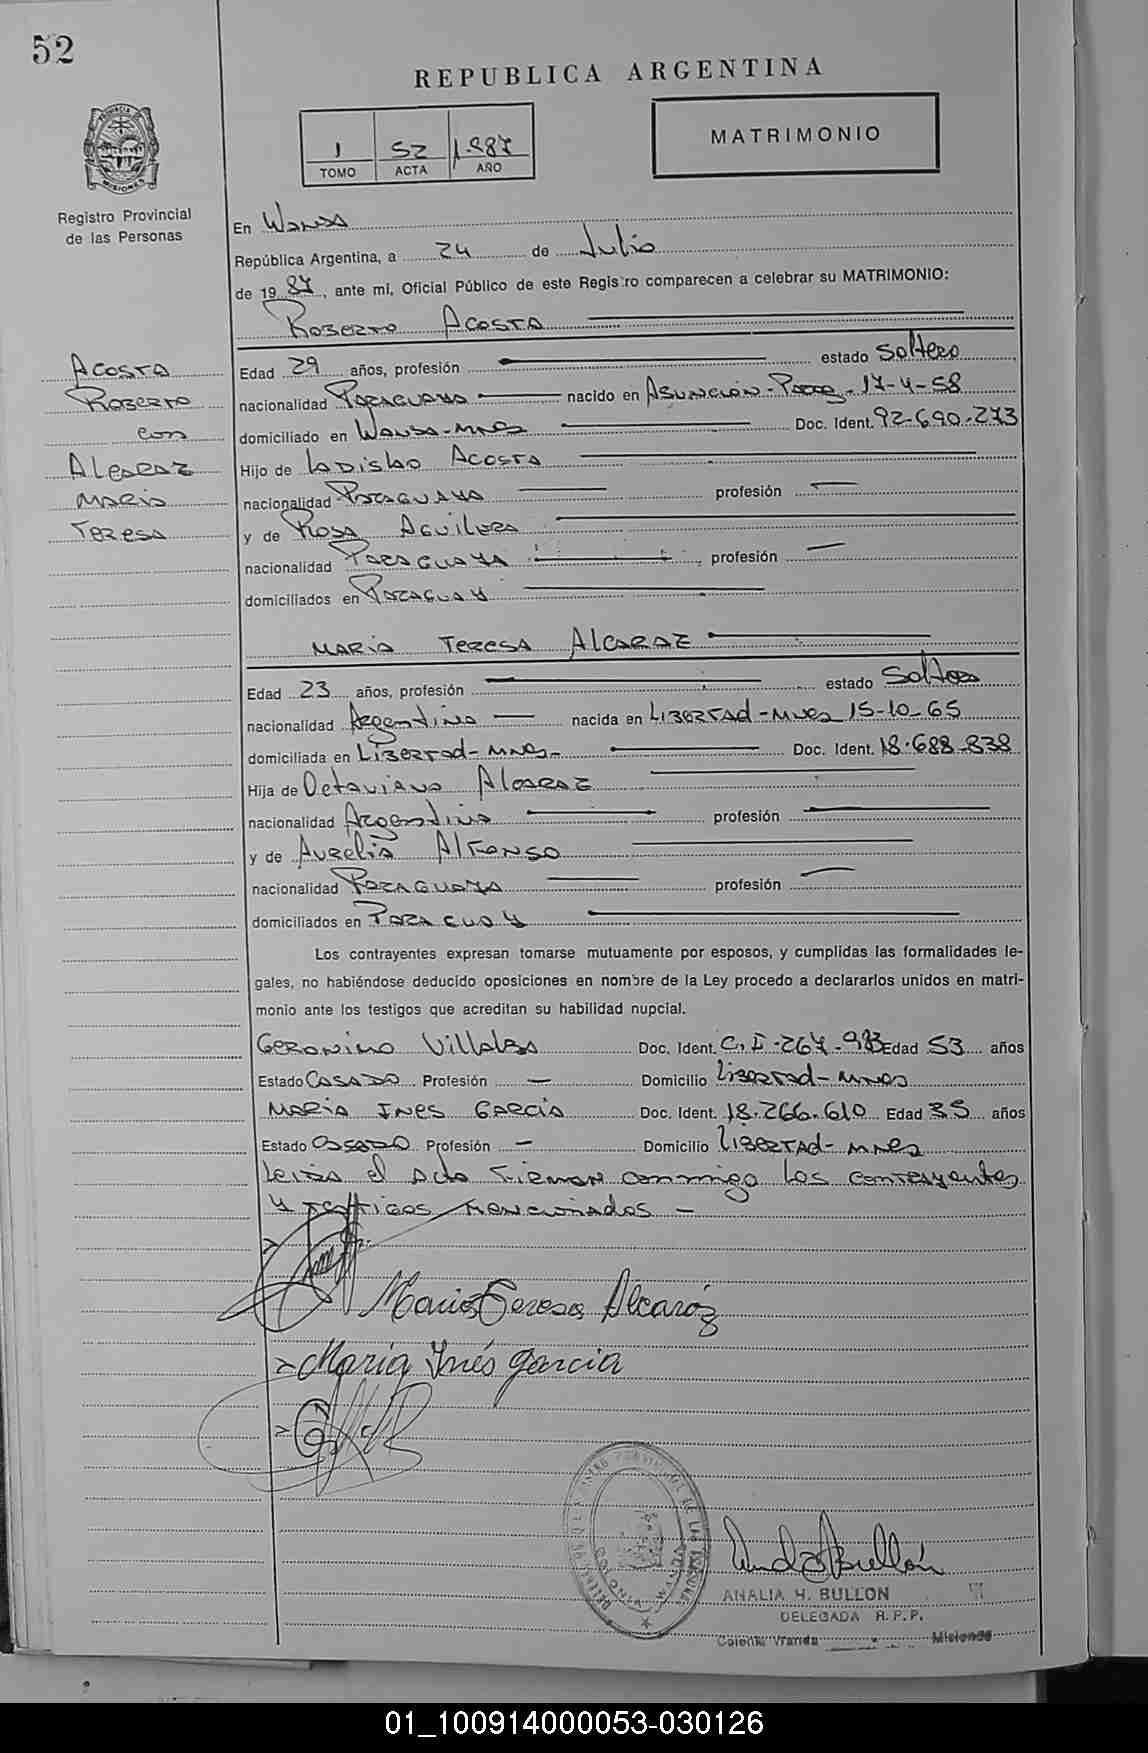 52
REPUBLICA ARGENTINA
1 52 1.987
TOMO ACTA AÑO
MATRIMONIO
Registro Provincial
de las Personas
En Wanda
República Argentina, a 24 de Julio
de 1987, ante mi, Oficial Público de este Registro comparecen a celebrar su MATRIMONIO:
Roberto Acosta
Acosta
Roberto
con
Alcaraz
Maria
Teresa
Edad 29 años, profesión estado Soltero
nacionalidad Paraguaya nacido en Asunción - 17-4-58
domiciliado en Wanda-Mnes Doc. Ident. 92-690.273
Hijo de Ladislao Acosta
nacionalidad Paraguaya profesión —
y de Rosa Aguilera
nacionalidad Paraguaya profesión —
domiciliados en Paraguay
Maria Teresa Alcaraz
Edad 23 años, profesión estado Soltera
nacionalidad Argentina nacida en Libertad-Mnes 15-10-65
domiciliada en Libertad-Mnes- Doc. Ident. 18.688.838
Hija de Octaviano Alcaraz
nacionalidad Argentina profesión
y de Aurelia Alfonso
nacionalidad Paraguaya profesión —
domiciliados en Paraguay
Los contrayentes expresan tomarse mutuamente por esposos, y cumplidas las formalidades le-
gales, no habiéndose deducido oposiciones en nombre de la Ley procedo a declararlos unidos en matri-
monio ante los testigos que acreditan su habilidad nupcial.
Geronimo Villalba Doc. Ident. C.I.-267-983 Edad 53 años
Estado Casado Profesión — Domicilio Libertad-Mnes
Maria Ines Garcia Doc. Ident. 18.266.610 Edad 35 años
Estado Casado Profesión — Domicilio Libertad-Mnes
Leida el Acta firman conmigo los contrayentes
y testigos mencionados —
Maria Teresa Alcaráz
Maria Inés Garcia
ANALIA H. BULLON
DELEGADA R.P.P.
Colonia Wanda Misiones
01_100914000053-030126